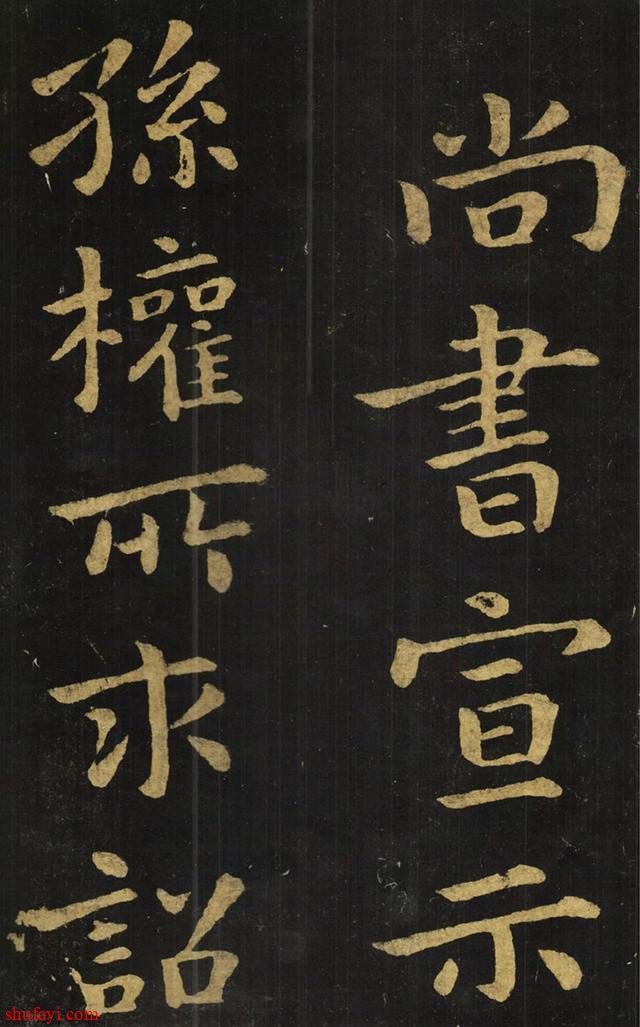 尚書宣示
孫權所求詔
shufayi.com